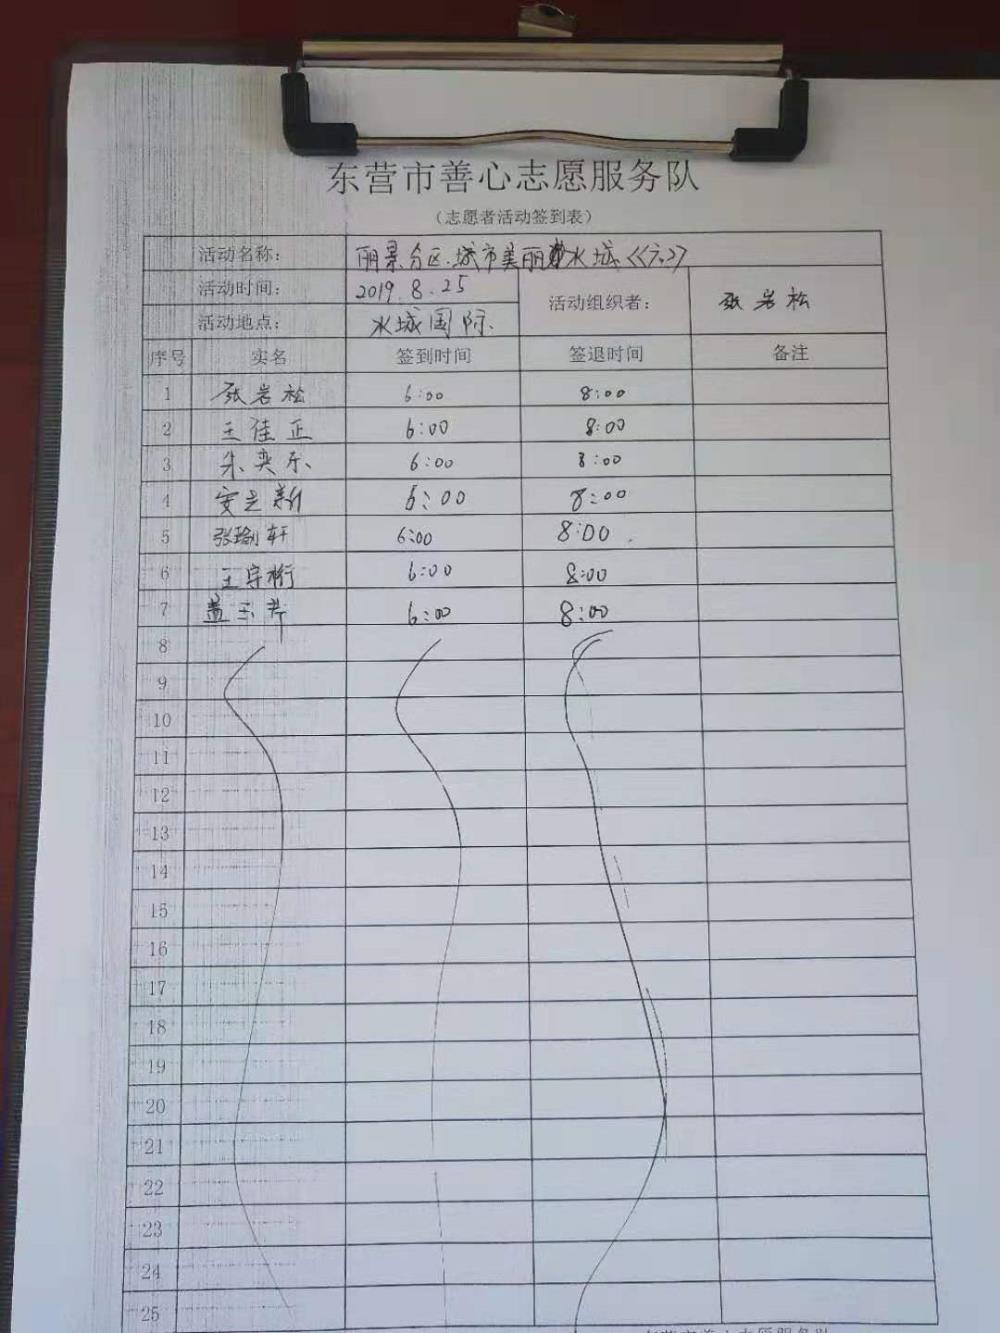 东营市善心志愿服务队
（志愿者活动签到表）
活动名称： 丽景分区.城市美丽 水城《六二》
活动时间： 2019.8.25 活动组织者： 张岩松
活动地点： 水城国际
序号 实名 签到时间 签退时间 备注
1 张岩松 6:00 8:00
2 王佳正 6:00 8:00
3 朱奕乐 6:00 8:00
4 安芝新 6:00 8:00
5 张瑜轩 6:00 8:00
6 王宇桁 6:00 8:00
7 盖玉芹 6:00 8:00
8
9
10
11
12
13
14
15
16
17
18
19
20
21
22
23
24
25
东营市善心志愿服务队